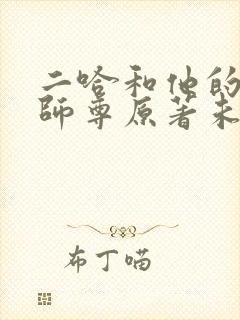 二哈和他的
師尊原著未
布丁喵